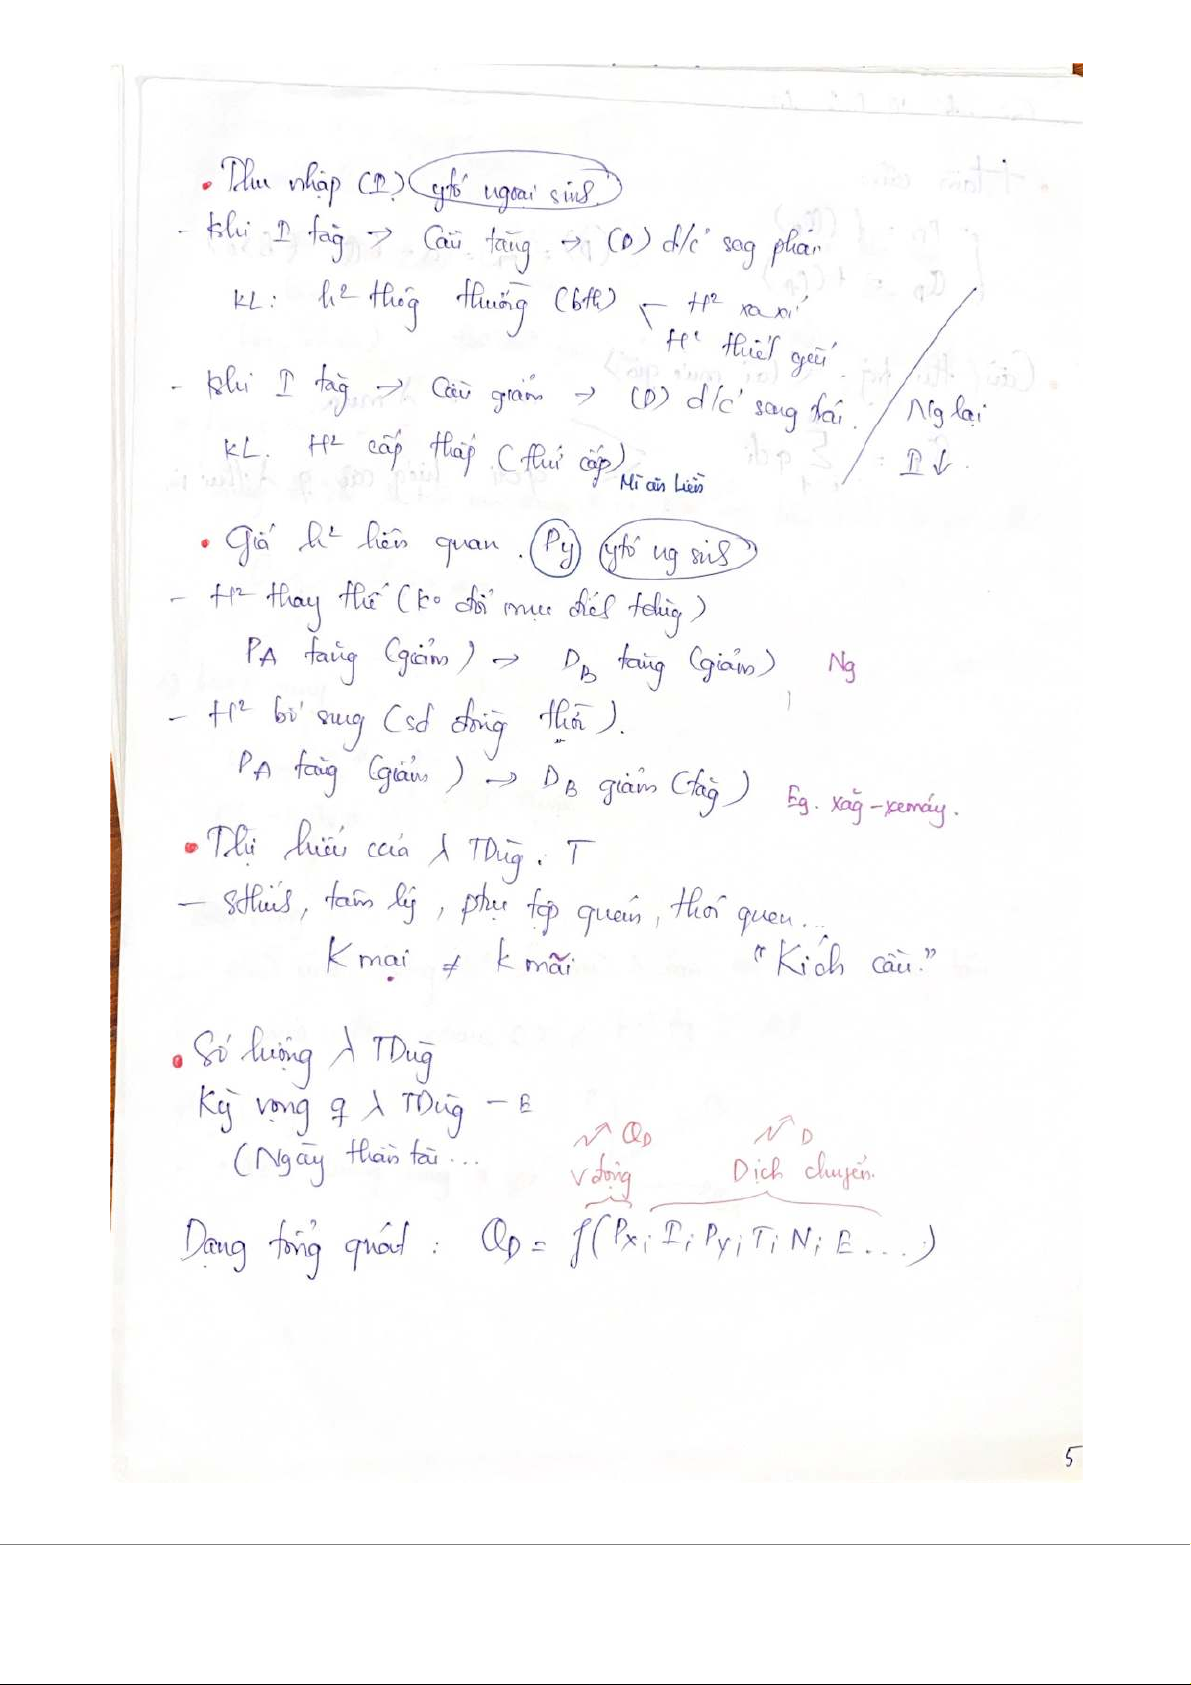 • Thu nhập (I) ytố ngoại sinh
- Khi I tăg → Cầu tăng → (D) d/c sag phải
KL: h² thôg thường (bth) ← H² xa xỉ
H² thiết yếu
- Khi I tăg → Cầu giảm → (D) d/c sang trái. Ng lại
I ↓.
KL. H² cấp thấp (thứ cấp)
Mì ăn liền
• Giá h² liên quan. Py ytố ng sinh
- H² thay thế (ko đổi mục đích tdùg)
PA tăng (giảm) → DB tăng (giảm) Ng
- H² bổ sung (sd đồng thời).
PA tăg (giảm) → DB giảm (tăg) Eg. xăg - xe máy.
• Thị hiếu của λ TDùg. T
- Sthích, tâm lý, phụ tập quán, thói quen...
K mại ≠ k mãi "Kích cầu."
• Số lượng λ TDùg
Kỳ vọng q λ TDùg - E
(Ngày thần tài...
QD D
Vđộng Dịch chuyển.
Dạng tổng quát: QD = f(Px; I; Py; T; N; E ....)
5